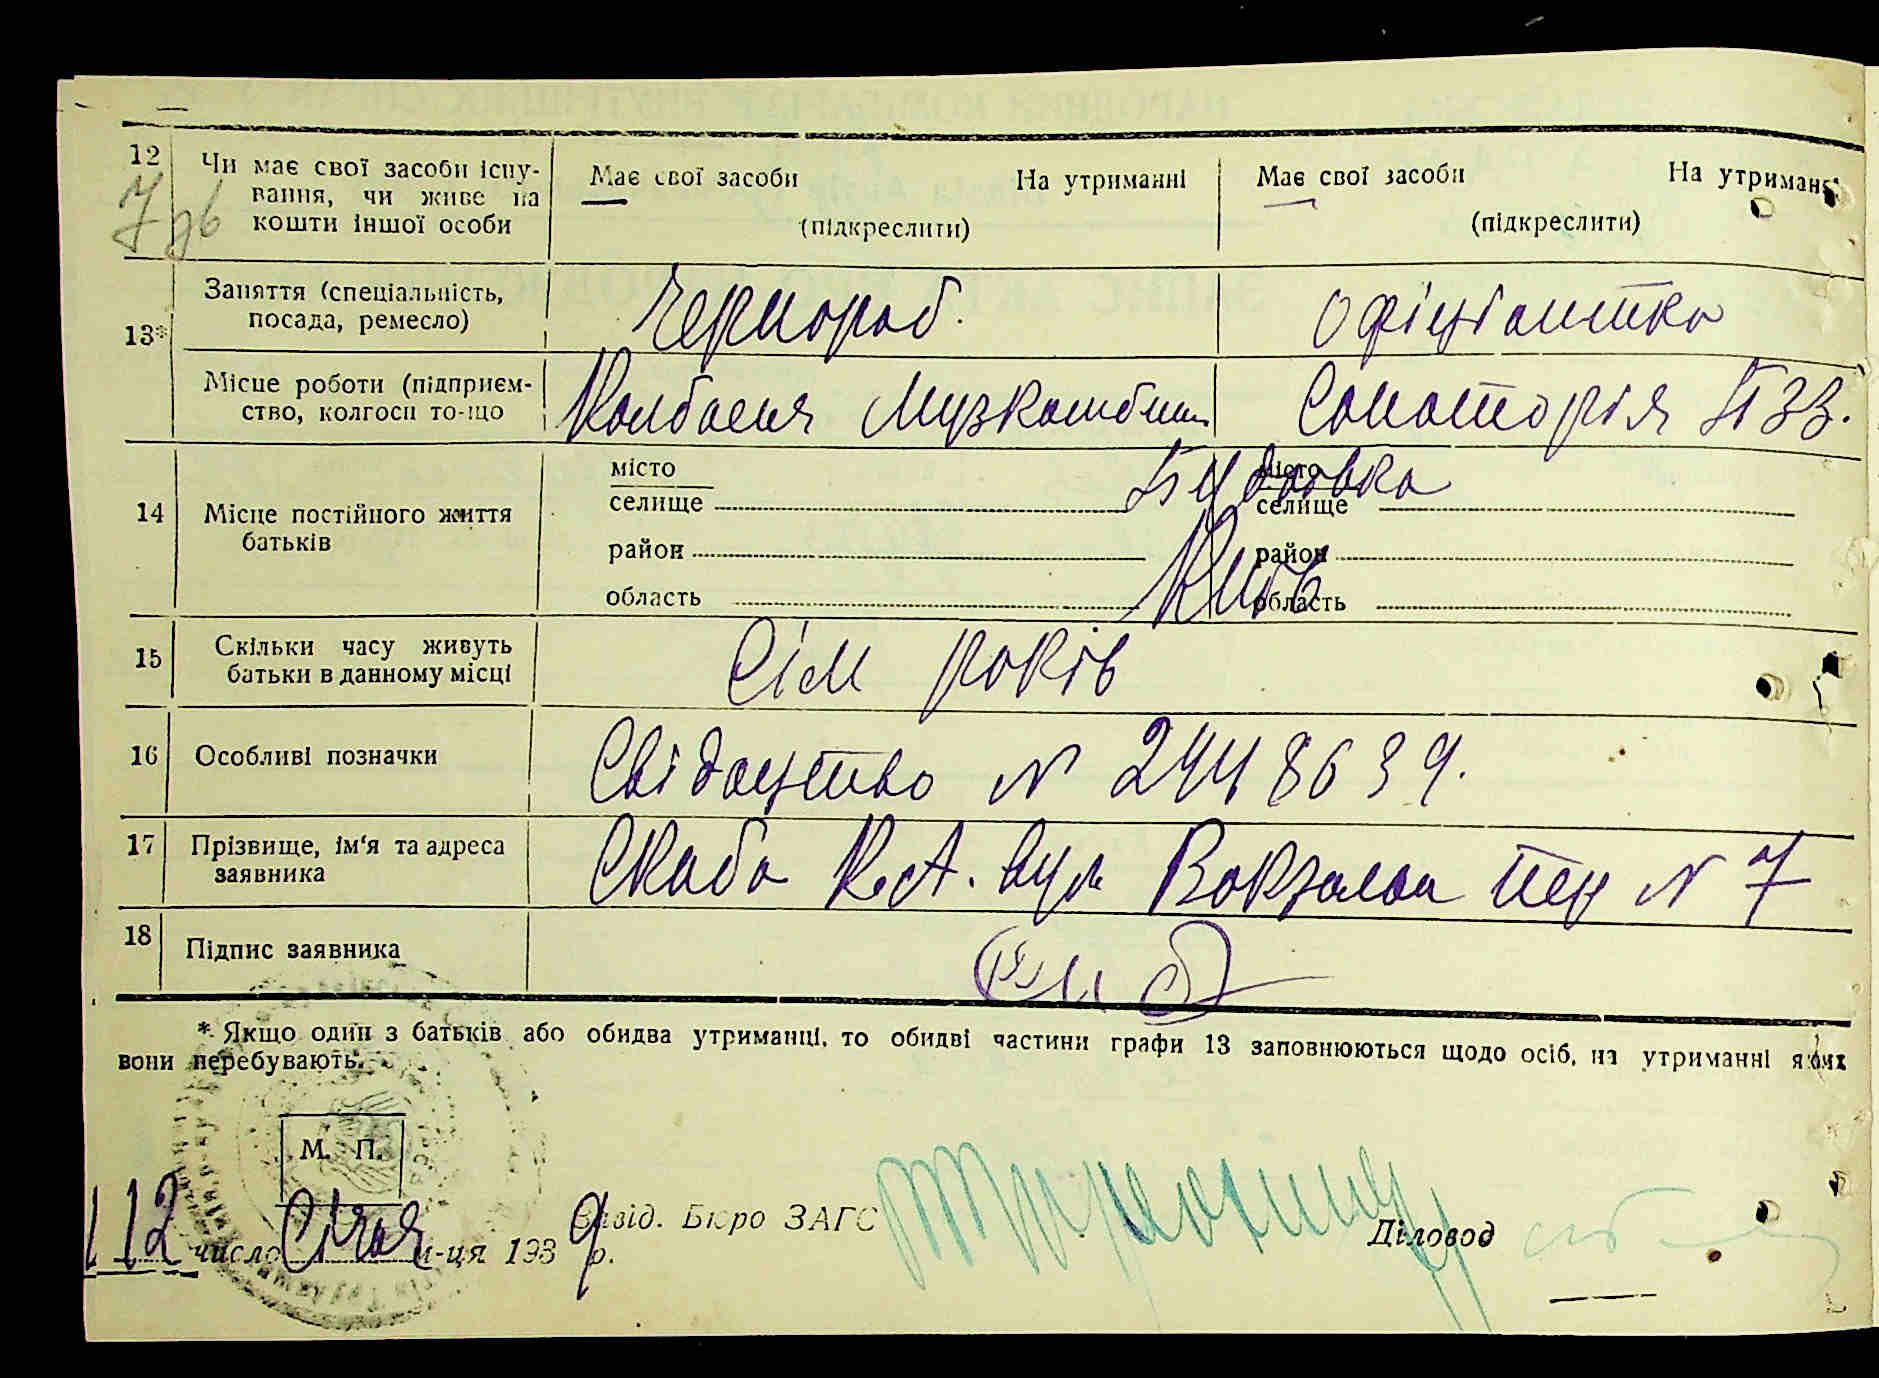 12 Чи має свої засоби існу-
вання, чи живе на
кошти іншої особи
Має свої засоби На утриманні
(підкреслити)
Має свої засоби На утриманні
(підкреслити)
13* Заняття (спеціальність,
посада, ремесло)
Чернораб.
Офіціантка
Місце роботи (підприєм-
ство, колгосп то-що
Колбасня
Санаторія
14 Місце постійного життя
батьків
місто
селище
район
область
місто
селище
район
область
Київ
15 Скільки часу живуть
батьки в данному місці
Сім років
16 Особливі позначки
Свідоцтво N 2448639.
17 Прізвище, ім'я та адреса
заявника
Скаба К.А. вул Вокзальна N 7
18 Підпис заявника
* Якщо один з батьків або обидва утриманці, то обидві частини графи 13 заповнюються щодо осіб, на утриманні яких
вони перебувають.
М. П.
12 число Січня м-ця 1939 р.
Завід. Бюро ЗАГС
Діловод